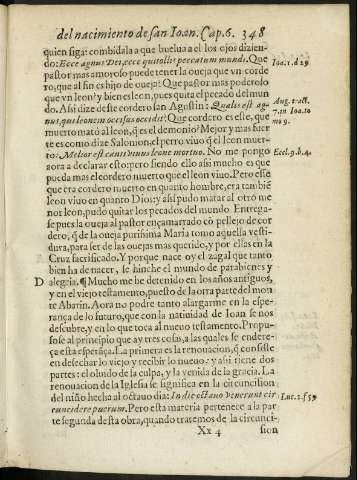 del nacimiento de san Ioan. Cap. 6. 348
quien siga: combidala a que buelua a el los ojos dizien-
do: Ecce agnus Dei, ecce qui tollit peccatum mundi. Que Ioa. 1. d 29
pastor mas amoroso puede tener la oueja que vn corde
ro, que al fin es hijo de oueja? Que pastor mas poderoso
que vn leon? y bien es leon, pues quita el pecado del mun
do. Assi dize deste cordero san Agustin: Qualis est ag-
nus, qui leonem occisus occidit? Que cordero es este, que
muerto mató al leon, q̃ es el demonio? Mejor y mas fuer
te es como dize Salomon, el perro viuo q̃ el leon muer-
to: Melior est canis viuus leone mortuo. No me pongo Eccl. 9. b. 4.
aora a declarar esto: pero siendo ello assi mucho es que
pueda mas el cordero muerto que el leon viuo. Pero este
que era cordero muerto en quanto hombre, era tambiẽ
leon viuo en quanto Dios: y assi pudo matar al otro me
nor leon, pudo quitar los pecados del mundo. Entrega-
se pues la oueja al pastor ençamarrado cõ pellejo de cor
dero, q̃ de la oueja purissima Maria tomo aquella vesti-
dura, para ser de las ouejas mas querido, y por ellas en la
Cruz sacrificado. Y porque nace oy el zagal que tanto
bien ha de nacer, se hinche el mundo de parabienes y
D alegria. ¶ Mucho me he detenido en los años antiguos,
y en el viejo testamento, puesto de la otra parte del mon
te Abarin. Aora no podre tanto alargarme en la espe-
rança de lo futuro, que con la natiuidad de Ioan se nos
descubre, y en lo que toca al nueuo testamento. Propu-
se al principio que ay tres cosas, a las quales se endere-
ça esta esperãça. La primera es la renouacion, q̃ consiste
en desechar lo viejo y recibir lo nueuo: y assi tiene dos
partes: el oluido de la culpa, y la venida de la gracia. La
renouacion de la Iglesia se significa en la circuncision
del niño hecha al octauo dia: In die octauo venerunt cir
cuncidere puerum. Pero esta materia pertenece a la par Luc. 1. f 59
te segunda desta obra, quando tratemos de la circunci-
Xx 4 sion